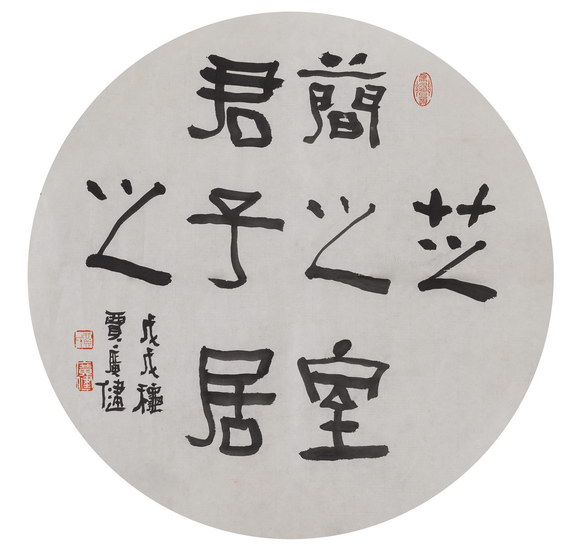 芝
蕳之室
君子居
之
戊戌穐
賈廣健